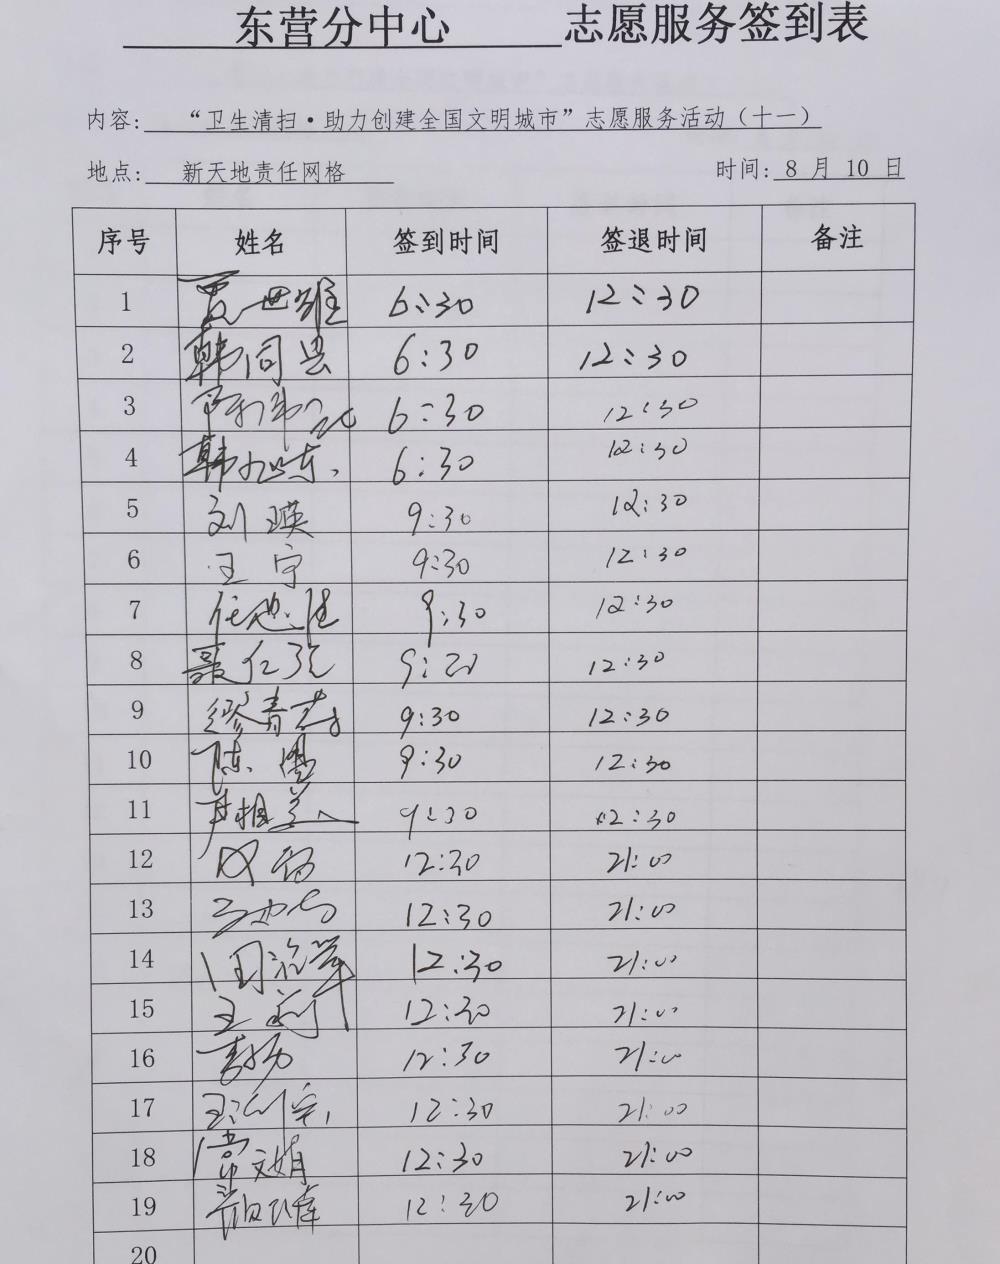 东营分中心 志愿服务签到表
内容: “卫生清扫·助力创建全国文明城市”志愿服务活动(十一)
地点: 新天地责任网格 时间: 8 月 10 日
序号 姓名 签到时间 签退时间 备注
1 夏世雄 6:30 12:30
2 韩同县 6:30 12:30
3 6:30 12:30
4 韩旭东 6:30 12:30
5 刘瑛 9:30 12:30
6 王宁 9:30 12:30
7 任 9:30 12:30
8 聂仁 9:30 12:30
9 缪青 9:30 12:30
10 陈勇 9:30 12:30
11 相兰 9:30 12:30
12 12:30 21:00
13 12:30 21:00
14 周 12:30 21:00
15 王莉 12:30 21:00
16 12:30 21:00
17 王 12:30 21:00
18 常文娟 12:30 21:00
19 12:30 21:00
20